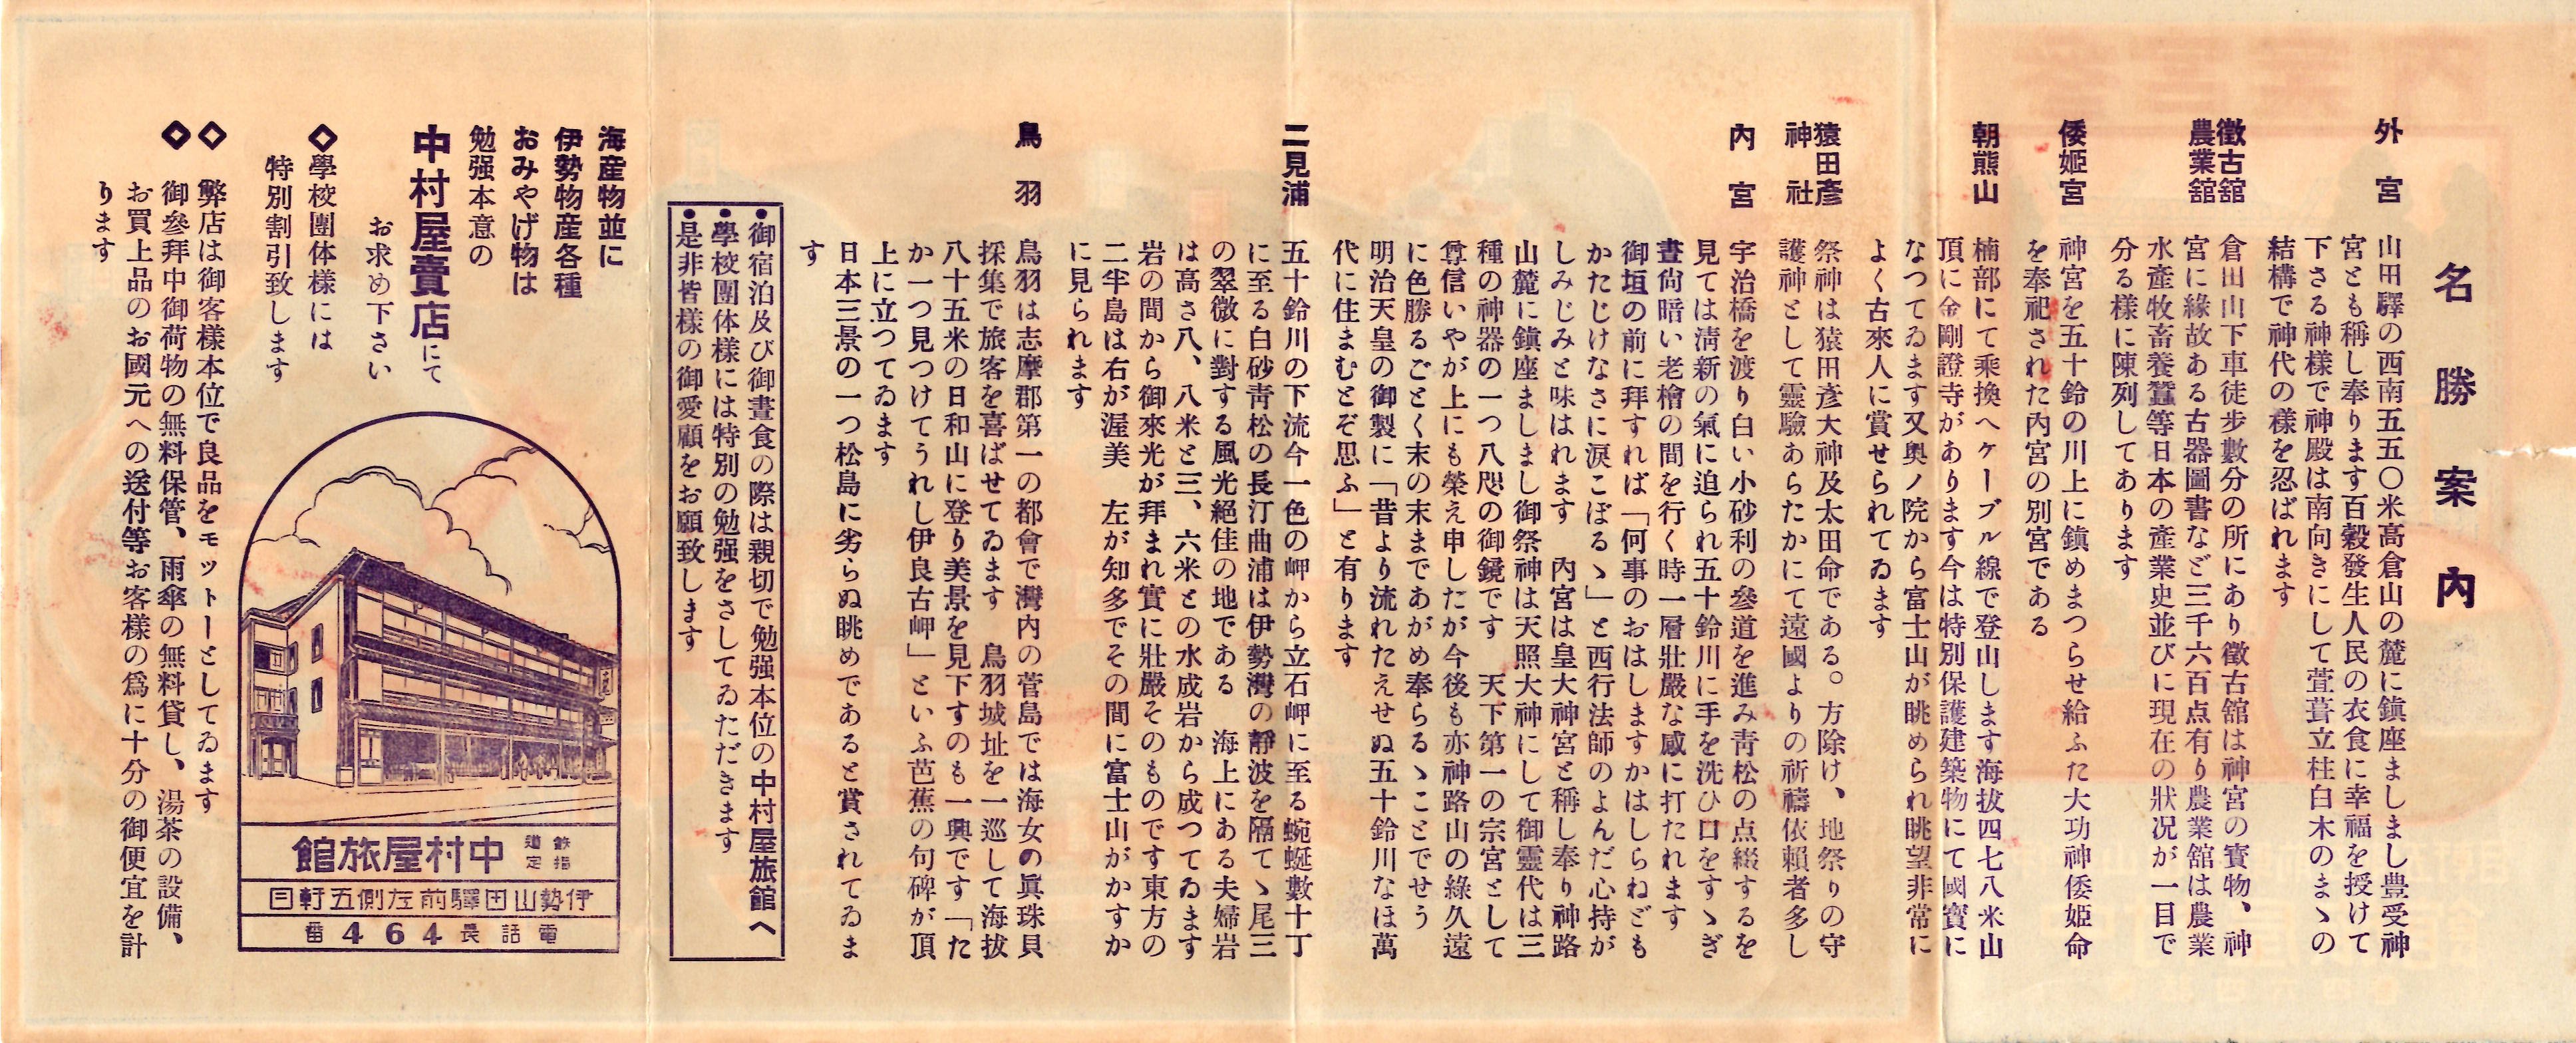 名勝案内
外宮
山田驛の西南五五〇米高倉山の麓に鎮座ましまし豊受神
宮とも稱し奉ります百穀發生人民の衣食に幸福を授けて
下さる神樣で神殿は南向きにして萱葺立柱白木のまゝの
結構で神代の樣を忍ばれます
徵古舘
農業舘
倉田山下車徒步數分の所にあり徵古舘は神宮の寳物、神
宮に緣故ある古器圖書など三千六百点有り農業舘は農業
水產牧畜養蠶等日本の產業史並びに現在の狀况が一目で
分る樣に陳列してあります
倭姬宮
神宮を五十鈴の川上に鎮めまつらせ給ふた大功神倭姬命
を奉祀された內宮の別宮である
朝熊山
楠部にて乘換へケーブル線で登山します海拔四七八米山
頂に金剛證寺があります今は特別保護建築物にて國寳に
なつてゐます又奥ノ院から富士山が眺められ眺望非常に
よく古來人に賞せられてゐます
猿田彥
神社
祭神は猿田彥大神及太田命である。方除け、地祭りの守
護神として靈驗あらたかにて遠國よりの祈禱依賴者多し
內宮
宇治橋を渡り白い小砂利の參道を進み靑松の点綴するを
見ては淸新の氣に迫られ五十鈴川に手を洗ひ口をすゝぎ
晝尙暗い老檜の間を行く時一層壯嚴な感に打たれます
御垣の前に拜すれば「何事のおはしますかはしらねども
かたじけなさに淚こぼるゝ」と西行法師のよんだ心持が
しみじみと味はれます 內宮は皇大神宮と稱し奉り神路
山麓に鎮座ましまし御祭神は天照大神にして御靈代は三
種の神器の一つ八咫の御鏡です 天下第一の宗宮として
尊信いやが上にも榮え申したが今後も亦神路山の綠久遠
に色勝るごとく末の末まであがめ奉らるゝことでせう
明治天皇の御製に「昔より流れたえせぬ五十鈴川なほ萬
代に住まむとぞ思ふ」と有ります
二見浦
五十鈴川の下流今一色の岬から立石岬に至る蜿蜒數十丁
に至る白砂靑松の長汀曲浦は伊勢灣の靜波を隔てゝ尾三
の翠微に對する風光絕佳の地である 海上にある夫婦岩
は高さ八、八米と三、六米との水成岩から成つてゐます
岩の間から御來光が拜まれ實に壯嚴そのものです東方の
二半島は右が渥美 左が知多でその間に富士山がかすか
に見られます
鳥羽
鳥羽は志摩郡第一の都會で灣內の菅島では海女の眞珠貝
採集で旅客を喜ばせてゐます 鳥羽城址を一巡して海拔
八十五米の日和山に登り美景を見下すのも一興です「た
か一つ見つけてうれし伊良古岬」といふ芭蕉の句碑が頂
上に立つてゐます
日本三景の一つ松島に劣らぬ眺めであると賞されてゐま
す
●御宿泊及び御晝食の際は親切で勉强本位の中村屋旅館へ
●學校團体樣には特別の勉强をさしてゐただきます
●是非皆樣の御愛顧をお願致します
海産物並に
伊勢物産各種
おみやげ物は
勉强本意の
中村屋賣店にて
お求め下さい
◇學校團体樣には
特別割引致します
◇弊店は御客樣本位で良品をモットーとしてゐます
◇御參拜中御荷物の無料保管、雨傘の無料貸し、湯茶の設備、
お買上品のお國元への送付等お客樣の爲に十分の御便宜を計
ります
鉄道指定
中村屋旅館
伊勢山田驛前左側五軒目
電話長464番